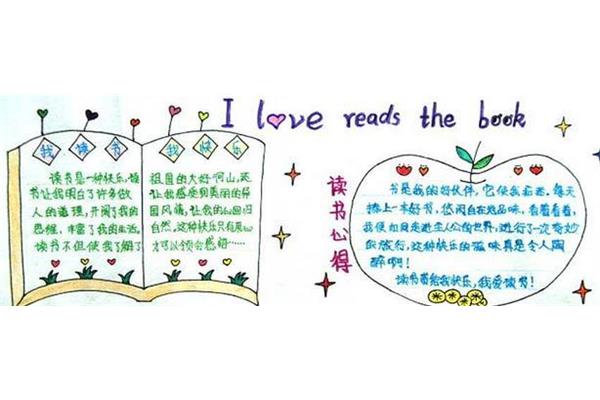 I love reads the book
我 读 书
读书是一种快乐,读
书让我明白了许多做
人的道理,开阔了我的
思维,丰富了我的生活。
读书不但使我了解了
我 快 乐
祖国的大好河山,还
让我感受到美丽的异
国风情,让我的心回归
自然,这种快乐只有用心
才可以领会感悟……
读书心得
书是我的好伙伴,它使我着迷,每天
捧上一本好书,悠闲自在地品味,看着看着,
我便如同走进主人公的世界,进行了一次奇妙
的旅行,这种快乐的滋味真是令人陶
醉啊!
读书带给我快乐,我爱读书!